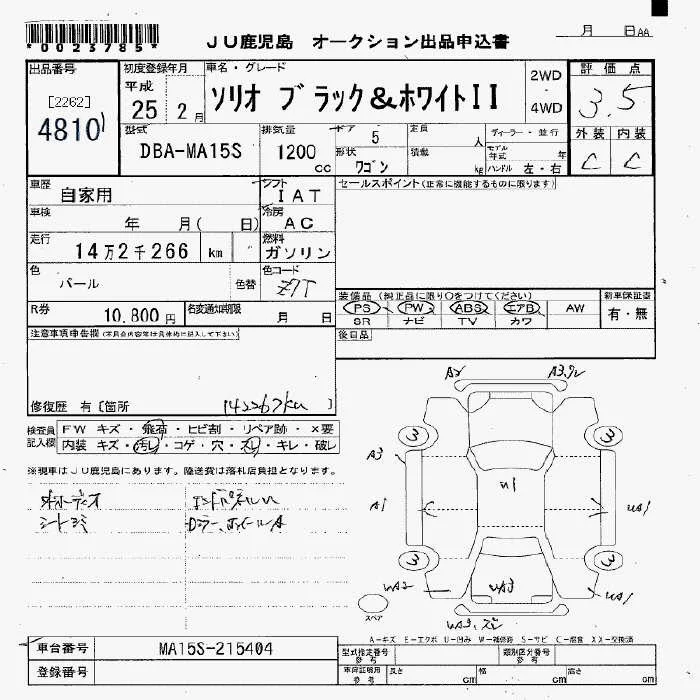 *0023785*
JU鹿児島 オークション出品申込書
月 日AA
出品番号
[2262]
4810
初度登録年月
平成
25 2月
車名・グレード
ソリオ ブラック&ホワイトII
2WD
・
4WD
評価点
3.5
外装 内装
C C
型式
DBA-MA15S
排気量
1200
cc
ドア 5
形状
ワゴン
定員 人
積載 kg
ディーラー・並行
モデル年式 年
ハンドル 左・右
車歴
自家用
シフト
IAT
セールスポイント(正常に機能するものに限ります)
車検
年 月( 日)
冷房
AC
走行
14万2千266 km
燃料
ガソリン
色
パール
色替
色コード
Z7T
R券
10,800円
名変通知期限
月 日
装備品(純正品に限り○をつけてください)
新車保証書
PS PW ABS エアB AW
SR ナビ TV カワ
有・無
後日品
注意事項申告欄
修復歴 有〔箇所 142267km 〕
検査員記入欄
FW キズ・発荷・ヒビ割・リペア跡・X要
内装 キズ・汚レ・コゲ・穴・スレ・キレ・破レ
※現車はJU鹿児島にあります。陸送費は落札店負担となります。
オーディオ
A2
A3
A1
U1
3
3
3
3
UA1
UA2
UA3
UA1
スペア
A-キズ E-エクボ U-凹み W-補修跡 S-サビ C-腐食 XX-交換済
車台番号
MA15S-215404
登録番号
型式指定番号
参考
類別区分番号
参考
車庫証明用
参考
長さ cm
幅 cm
高さ cm